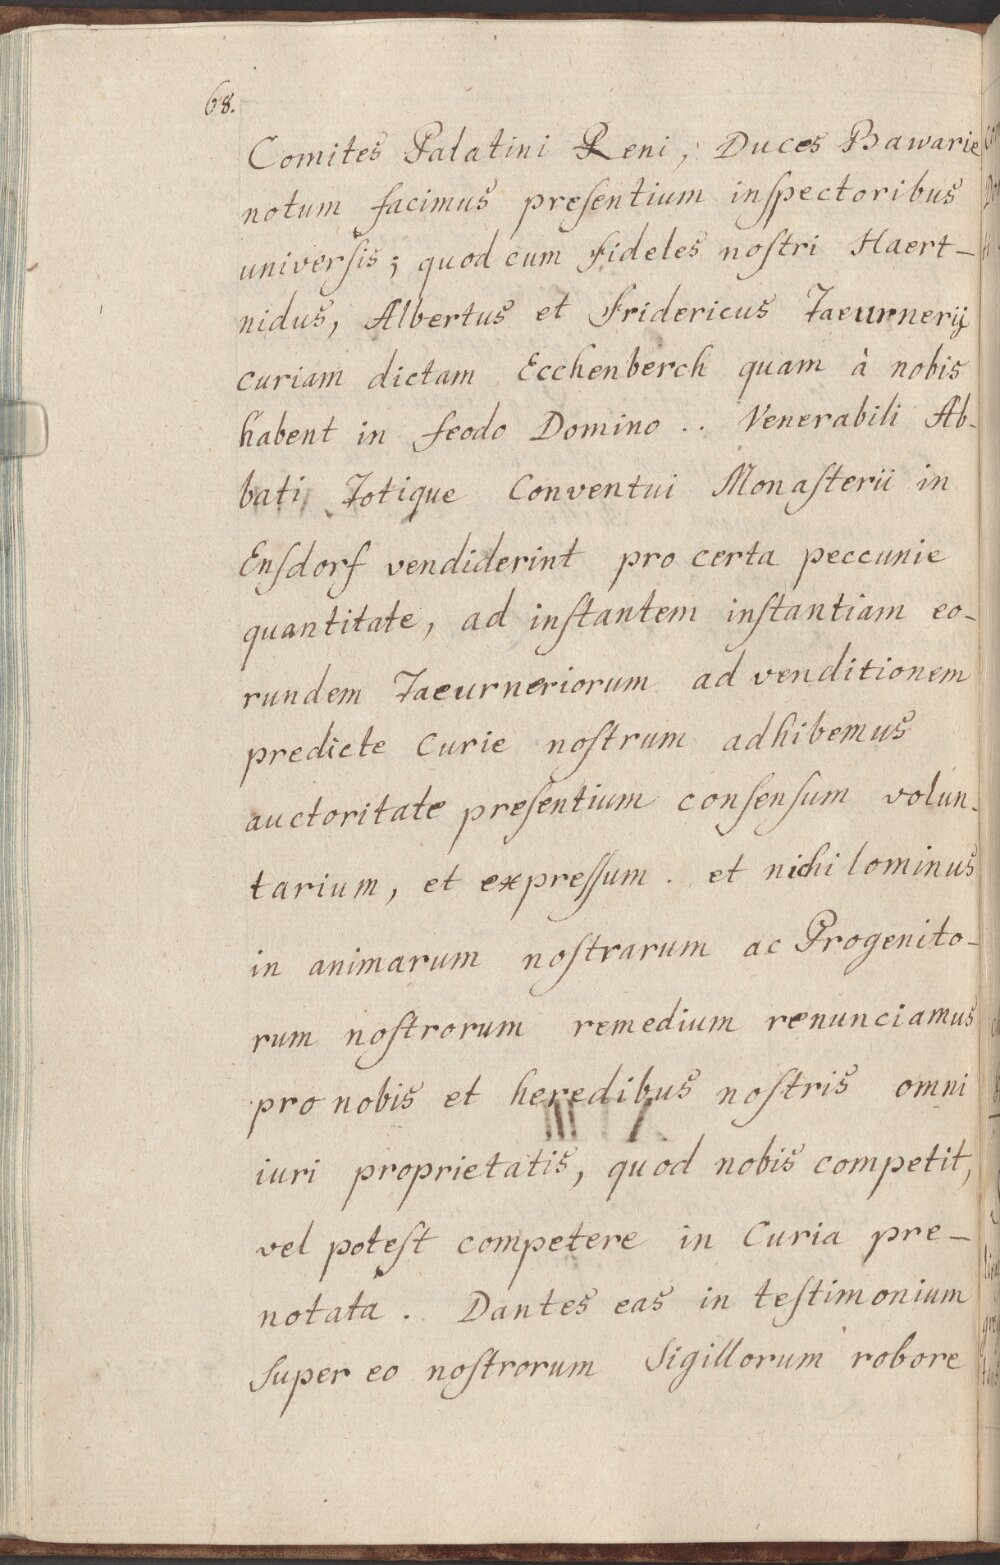 68.
Comites Palatini Reni, Duces Bawarie
notum facimus preſentium inſpectoribus
univerſis; quod cum fideles noſtri Haert-
nidus, Albertus et Fridericus Taeurnerij
curiam dictam Ecchenberch quam à nobis
habent in feodo Domino .. Venerabili Ab-
bati Totique Conventui Monaſterii in
Enſdorf vendiderint pro certa peccunie
quantitate, ad inſtantem inſtantiam eo-
rundem Taeurneriorum ad venditionem
predicte Curie noſtrum adhibemus
auctoritate preſentium conſenſum volun-
tarium, et expreſſum. et nichilominus
in animarum noſtrarum ac Progenito-
rum noſtrorum remedium renunciamus
pro nobis et heredibus noſtris omni
iuri proprietatis, quod nobis competit,
vel poteſt competere in Curia pre-
notata. Dantes eas in teſtimonium
ſuper eo noſtrorum Sigillorum robore